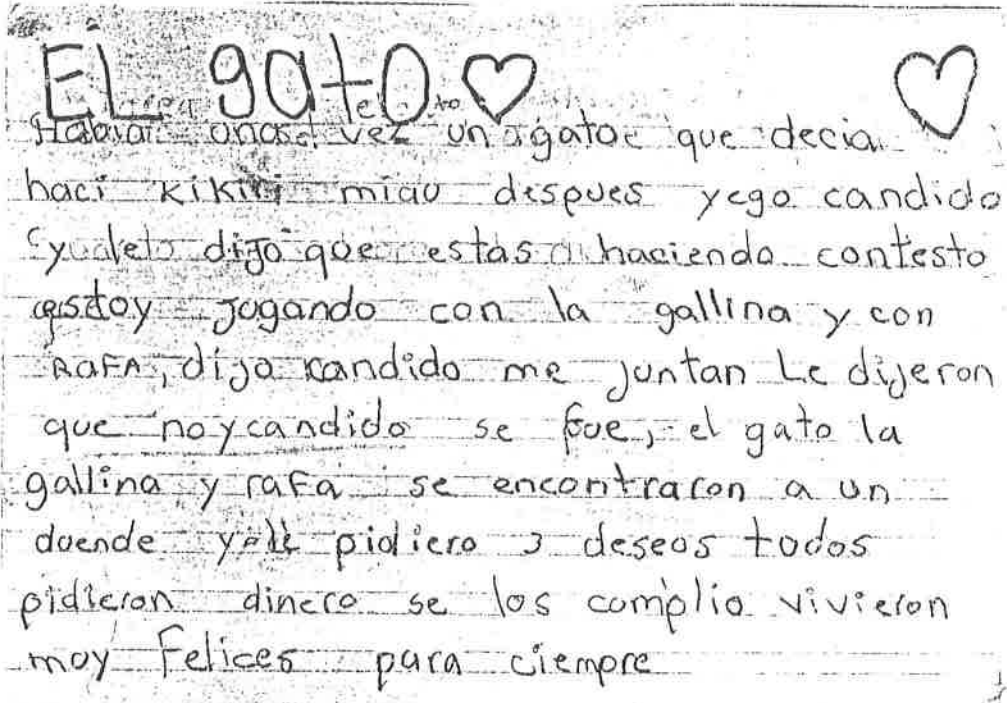 EL gato
Habia una vez un gato que decia
haci kikiri miau despues yego candido
y le dijo que estas haciendo contesto
estoy jugando con la gallina y con
RAFA, dijo candido me juntan Le dijeron
que no y candido se fue, el gato la
gallina y rafa se encontraron a un
duende y le pidiero 3 deseos todos
pidieron dinero se los complio vivieron
moy Felices para ciempre